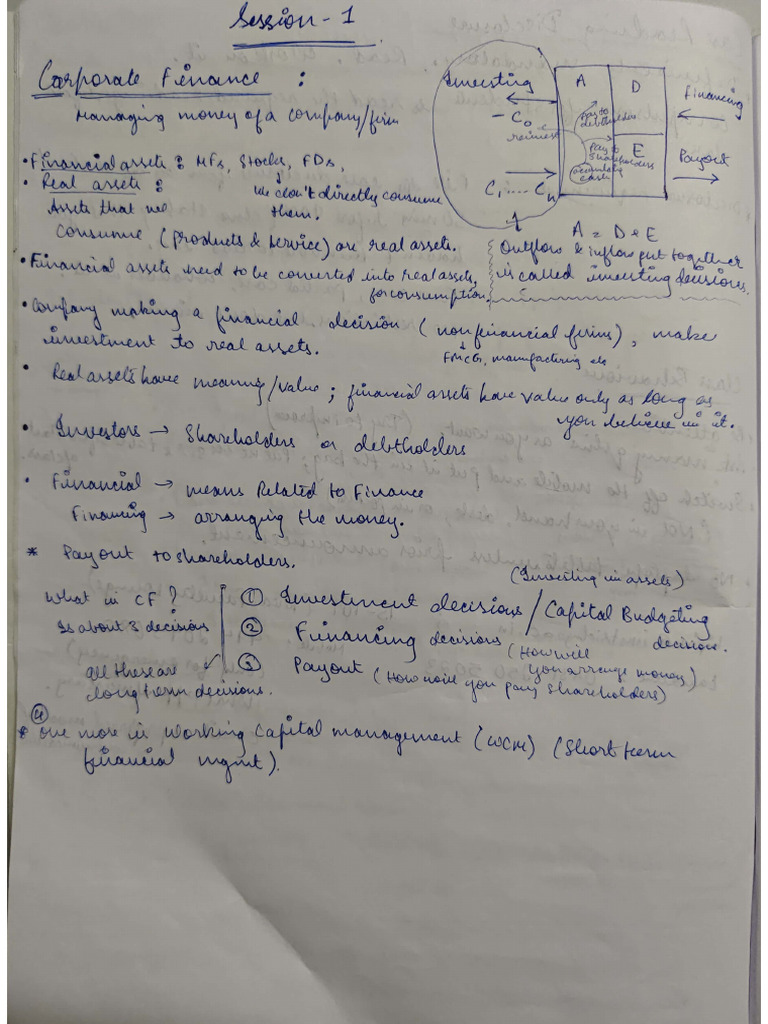 Session - 1
Corporate Finance :
Managing money of a company/firm
Investing
- C₀
reinvest
C₁ .... Cₙ
A
D
E
Pay to debtholders
Pay to shareholders
cash
Financing
Payout
A = D + E
Outflow & inflow put together
is called investing decisions.
• Financial assets : MFs, Stocks, FDs,
we don't directly consume
them.
• Real assets :
Assets that we
consume (products & service) are real assets.
• Financial assets need to be converted into real assets,
for consumption.
• Company making a financial decision (non financial firms), make
investment to real assets.
FMCG, manufacturing etc
• Real assets have meaning/value ; financial assets have value only as long as
you believe in it.
• Investors → Shareholders or debtholders
• Financial → means Related to Finance
Financing → arranging the money.
* Payout to shareholders.
What is CF ?
Is about 3 decisions
All these are
long term decisions.
(Investing in assets)
① Investment decisions / Capital Budgeting
decision.
② Financing decisions (How will
you arrange money)
③ Payout (How will you pay shareholders)
④
* One more is Working Capital management (WCM) (Short term
financial mgmt).